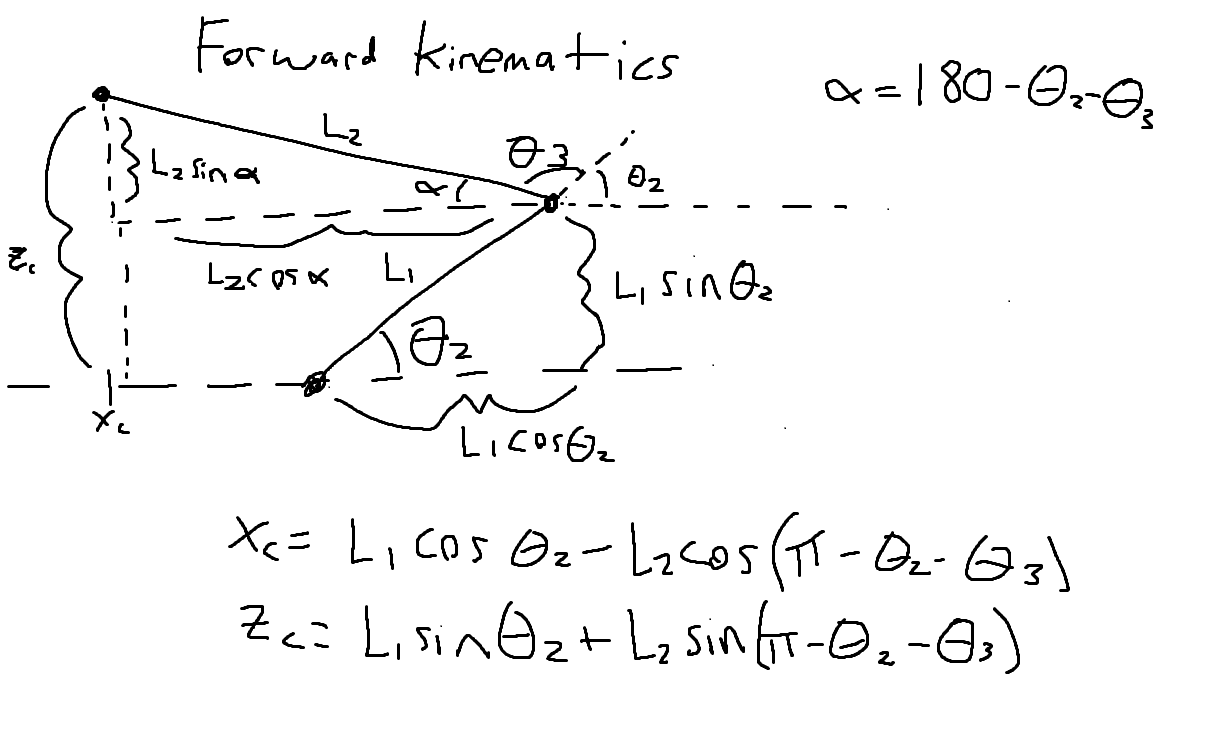 Forward kinematics
α = 180 - θ₂ - θ₃
L₂
θ3
θ₂
L₂ sin α
α
z_c
L₂ cos α
L₁
L₁ sin θ₂
θ₂
x_c
L₁ cos θ₂
x_c = L₁ cos θ₂ - L₂ cos(π - θ₂ - θ₃)
z_c = L₁ sin θ₂ + L₂ sin(π - θ₂ - θ₃)